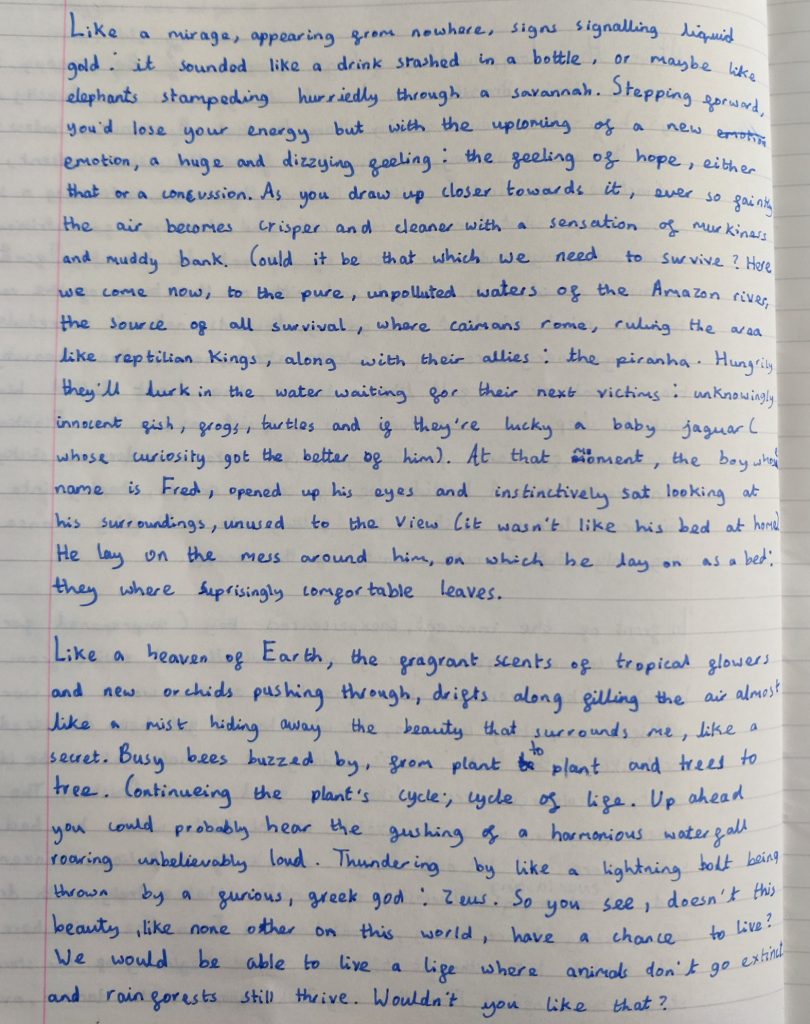 Like a mirage, appearing from nowhere, signs signalling liquid
gold: it sounded like a drink stashed in a bottle, or maybe like
elephants stampeding hurriedly through a savannah. Stepping forward,
you'd lose your energy but with the upcoming of a new emotion
emotion, a huge and dizzying feeling: the feeling of hope, either
that or a concussion. As you draw up closer towards it, ever so faintly
the air becomes crisper and cleaner with a sensation of murkiness
and muddy bank. Could it be that which we need to survive? Here
we come now, to the pure, unpolluted waters of the Amazon river,
the source of all survival, where caimans rome, ruling the area
like reptilian Kings, along with their allies: the piranha. Hungrily
they'll lurk in the water waiting for their next victims: unknowingly
innocent fish, frogs, turtles and if they're lucky a baby jaguar (
whose curiosity got the better of him). At that moment, the boy whos
name is Fred, opened up his eyes and instinctively sat looking at
his surroundings, unused to the view (it wasn't like his bed at home)
He lay on the mess around him, on which he lay on as a bed:
they where suprisingly comfortable leaves.
Like a heaven of Earth, the fragrant scents of tropical flowers
and new orchids pushing through, drifts along filling the air almost
like a mist hiding away the beauty that surrounds me, like a
secret. Busy bees buzzed by, from plant to plant and trees to
tree. Continueing the plant's cycle; cycle of life. Up ahead
you could probably hear the gushing of a harmonious waterfall
roaring unbelievably loud. Thundering by like a lightning bolt being
thrown by a furious, greek god: Zeus. So you see, doesn't this
beauty, like none other on this world, have a chance to live?
We would be able to live a life where animals don't go extinct
and rainforests still thrive. Wouldn't you like that?